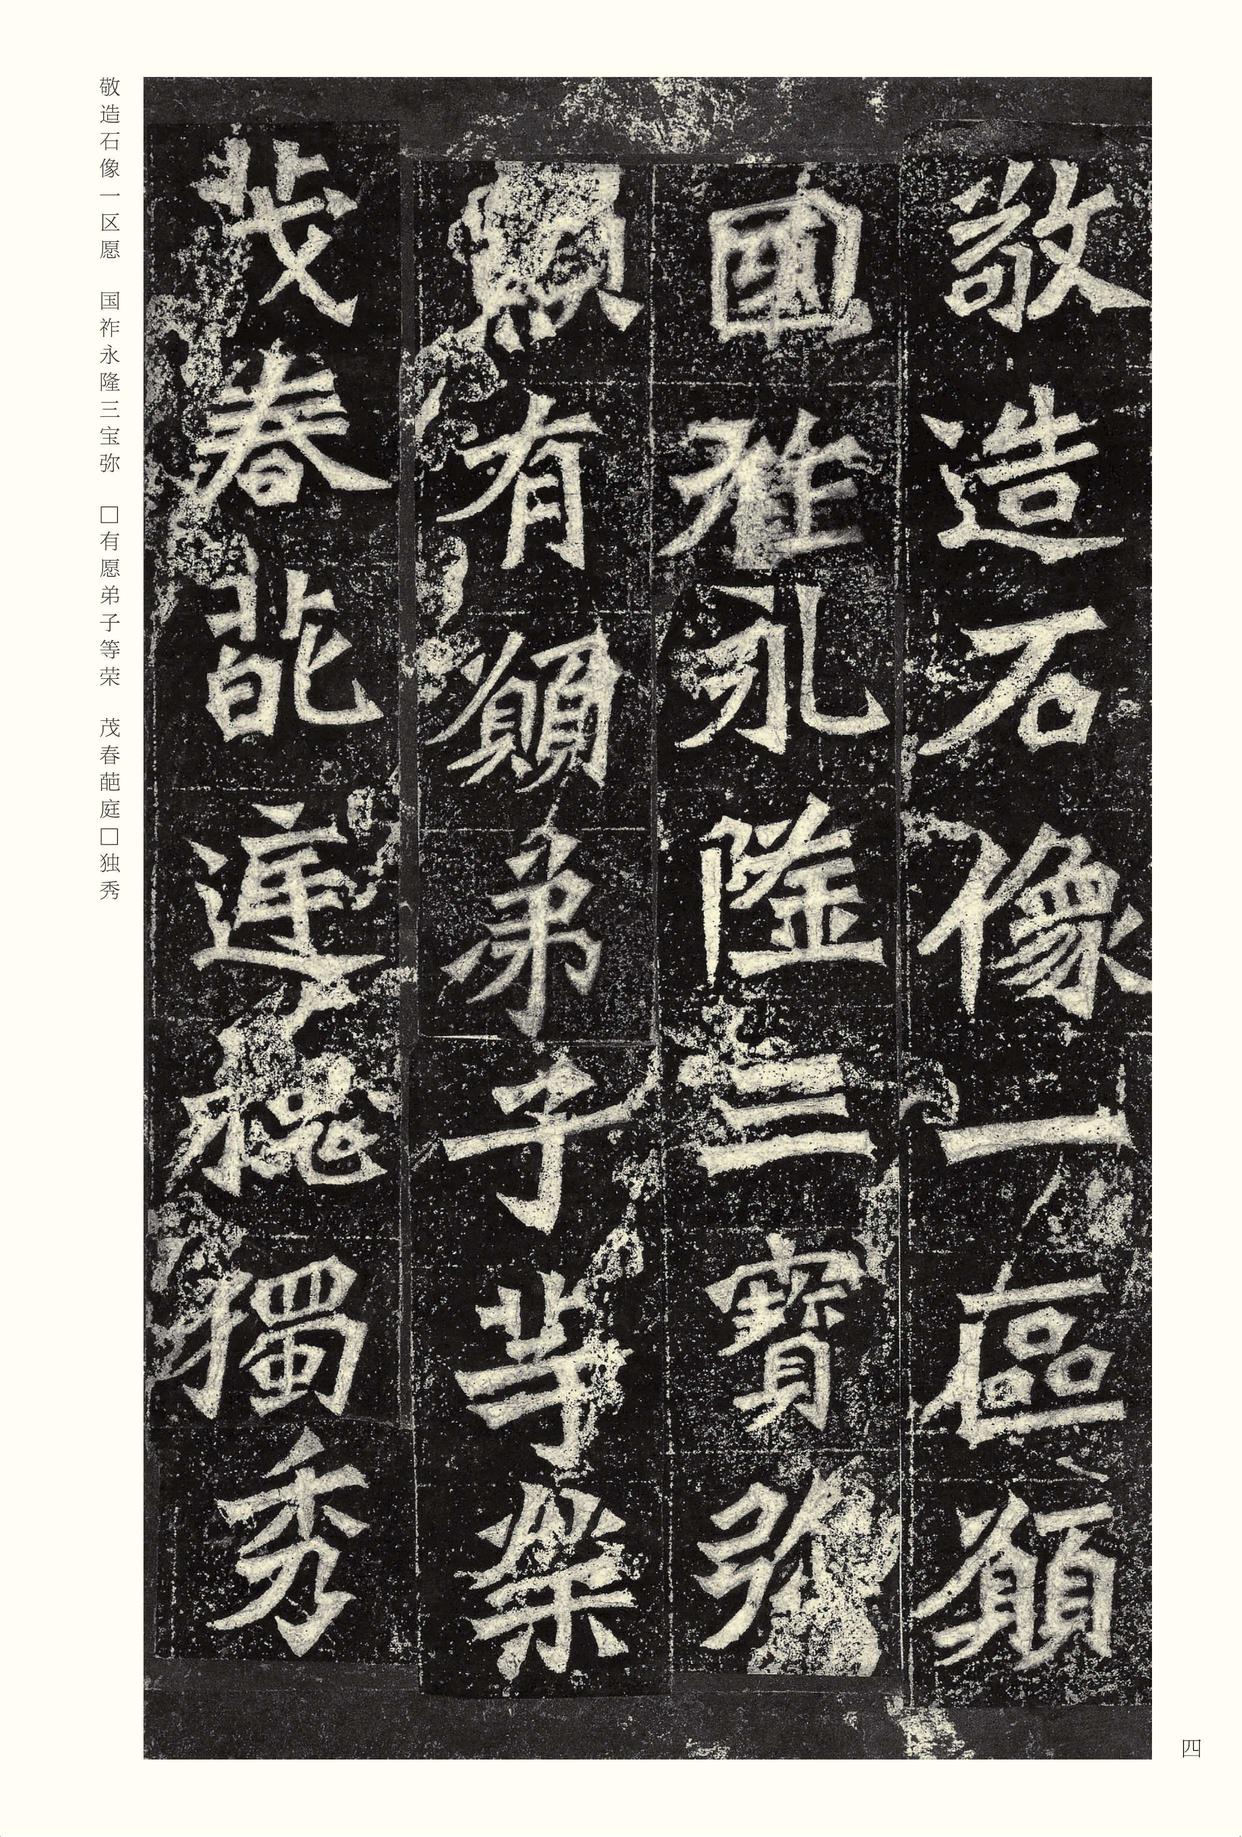 敬造石像一區願
國祚永隆三寶彌
顯有願弟子等榮
茂春葩庭槐獨秀
敬造石像一区愿　国祚永隆三宝弥　□有愿弟子等荣　茂春葩庭□独秀
四